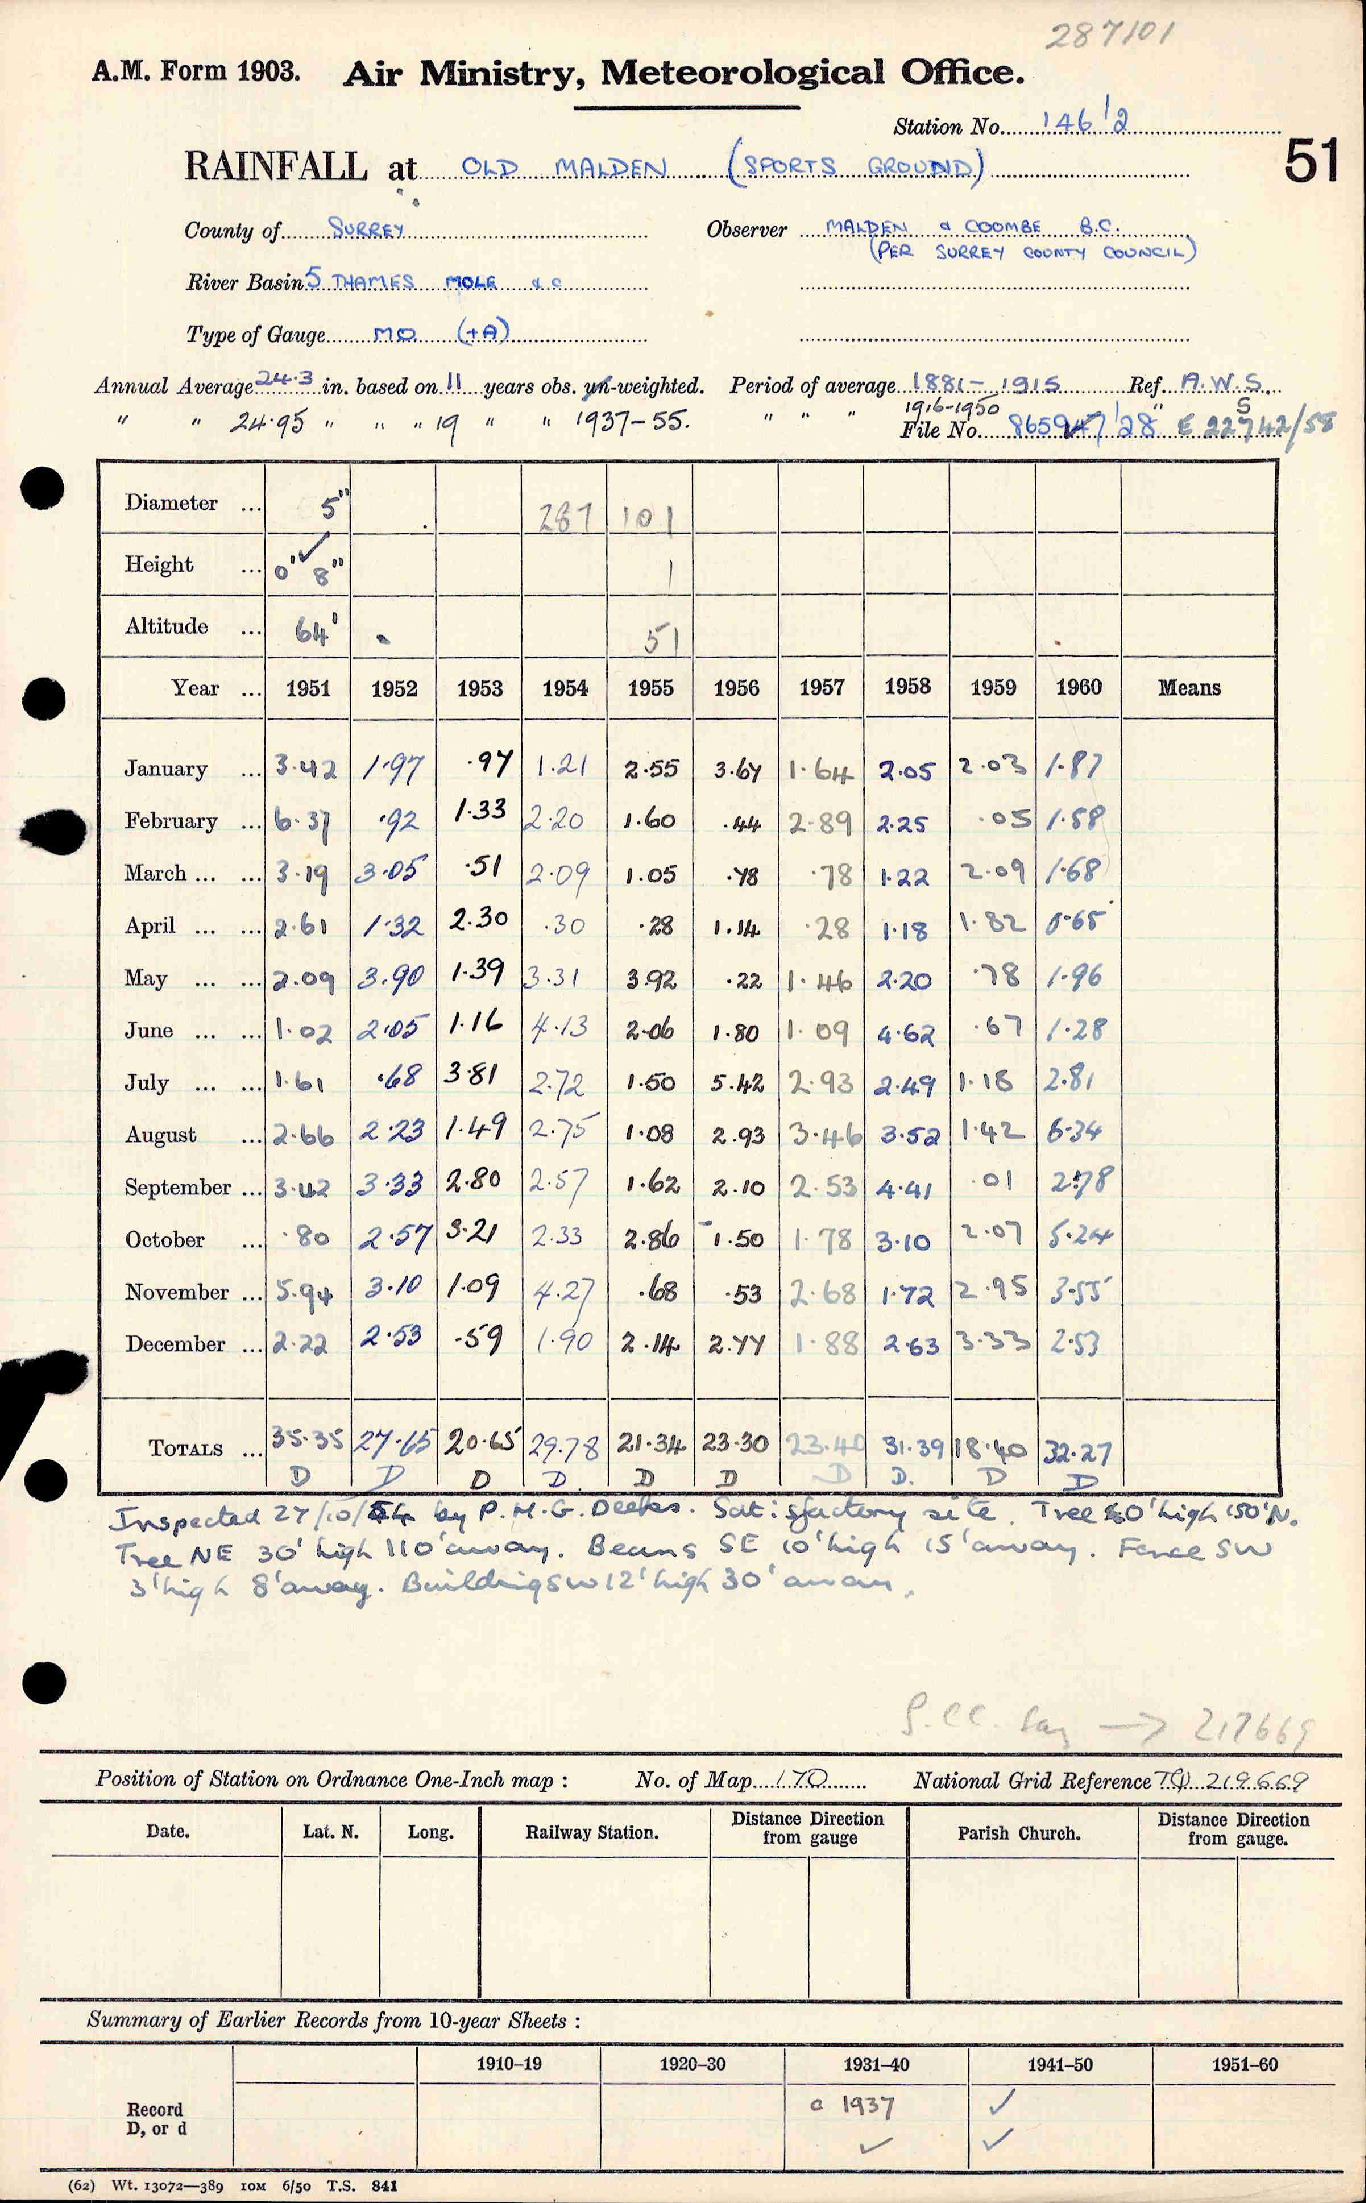 287101
A.M. Form 1903. Air Ministry, Meteorological Office.
Station No. 146 1/2
RAINFALL at OLD MALDEN (SPORTS GROUND) 51
County of SURREY Observer MALDEN & COOMBE B.C.
(PER SURREY COUNTY COUNCIL)
River Basin 5 THAMES MOLE &C
Type of Gauge MO (+A)
Annual Average 24.3 in. based on 11 years obs. un-weighted. Period of average 1881-1915 Ref. A.W.S.
1916-1950
" " 24.95 " " " 19 " " 1937-55. " " " File No. 865947/28 E 22742/58
S
Diameter ... 5" 287 101
Height ... 0' 8" 1
Altitude ... 64' 51
Year ... 1951 1952 1953 1954 1955 1956 1957 1958 1959 1960 Means
January ... 3.42 1.97 .97 1.21 2.55 3.67 1.64 2.05 2.03 1.87
February ... 6.37 .92 1.33 2.20 1.60 .44 2.89 2.25 .05 1.58
March ... ... 3.19 3.05 .51 2.09 1.05 .78 .78 1.22 2.09 1.68
April ... ... 2.61 1.32 2.30 .30 .28 1.14 .28 1.18 1.82 0.65
May ... ... 2.09 3.90 1.39 3.31 3.92 .22 1.46 2.20 .78 1.96
June ... ... 1.02 2.05 1.16 4.13 2.06 1.80 1.09 4.62 .67 1.28
July ... ... 1.61 .68 3.81 2.72 1.50 5.42 2.93 2.49 1.18 2.81
August ... 2.66 2.23 1.49 2.75 1.08 2.93 3.46 3.52 1.42 6.34
September ... 3.42 3.33 2.80 2.57 1.62 2.10 2.53 4.41 .01 2.78
October ... .80 2.57 3.21 2.33 2.86 1.50 1.78 3.10 2.07 5.24
November ... 5.94 3.10 1.09 4.27 .68 .53 2.68 1.72 2.95 3.55
December ... 2.22 2.53 .59 1.90 2.14 2.77 1.88 2.63 3.33 2.53
TOTALS ... 35.35 27.65 20.65 29.78 21.34 23.30 23.40 31.39 18.40 32.27
D D D D. D D D D. D D
Inspected 27/10/54 by P.H.G. Deeks. Satisfactory site. Tree 40' high 150' N.
Tree NE 30' high 110' away. Beans SE 10' high 15' away. Fence SW
3' high 8' away. Building SW 12' high 30' away.
S.CC. say → 217669
Position of Station on Ordnance One-Inch map : No. of Map 170 National Grid Reference TQ 219669
Date. Lat. N. Long. Railway Station. Distance Direction from gauge Parish Church. Distance Direction from gauge.
Summary of Earlier Records from 10-year Sheets :
1910-19 1920-30 1931-40 1941-50 1951-60
Record D, or d a 1937 ✓
✓ ✓
(62) Wt. 13072—389 10M 6/50 T.S. 841